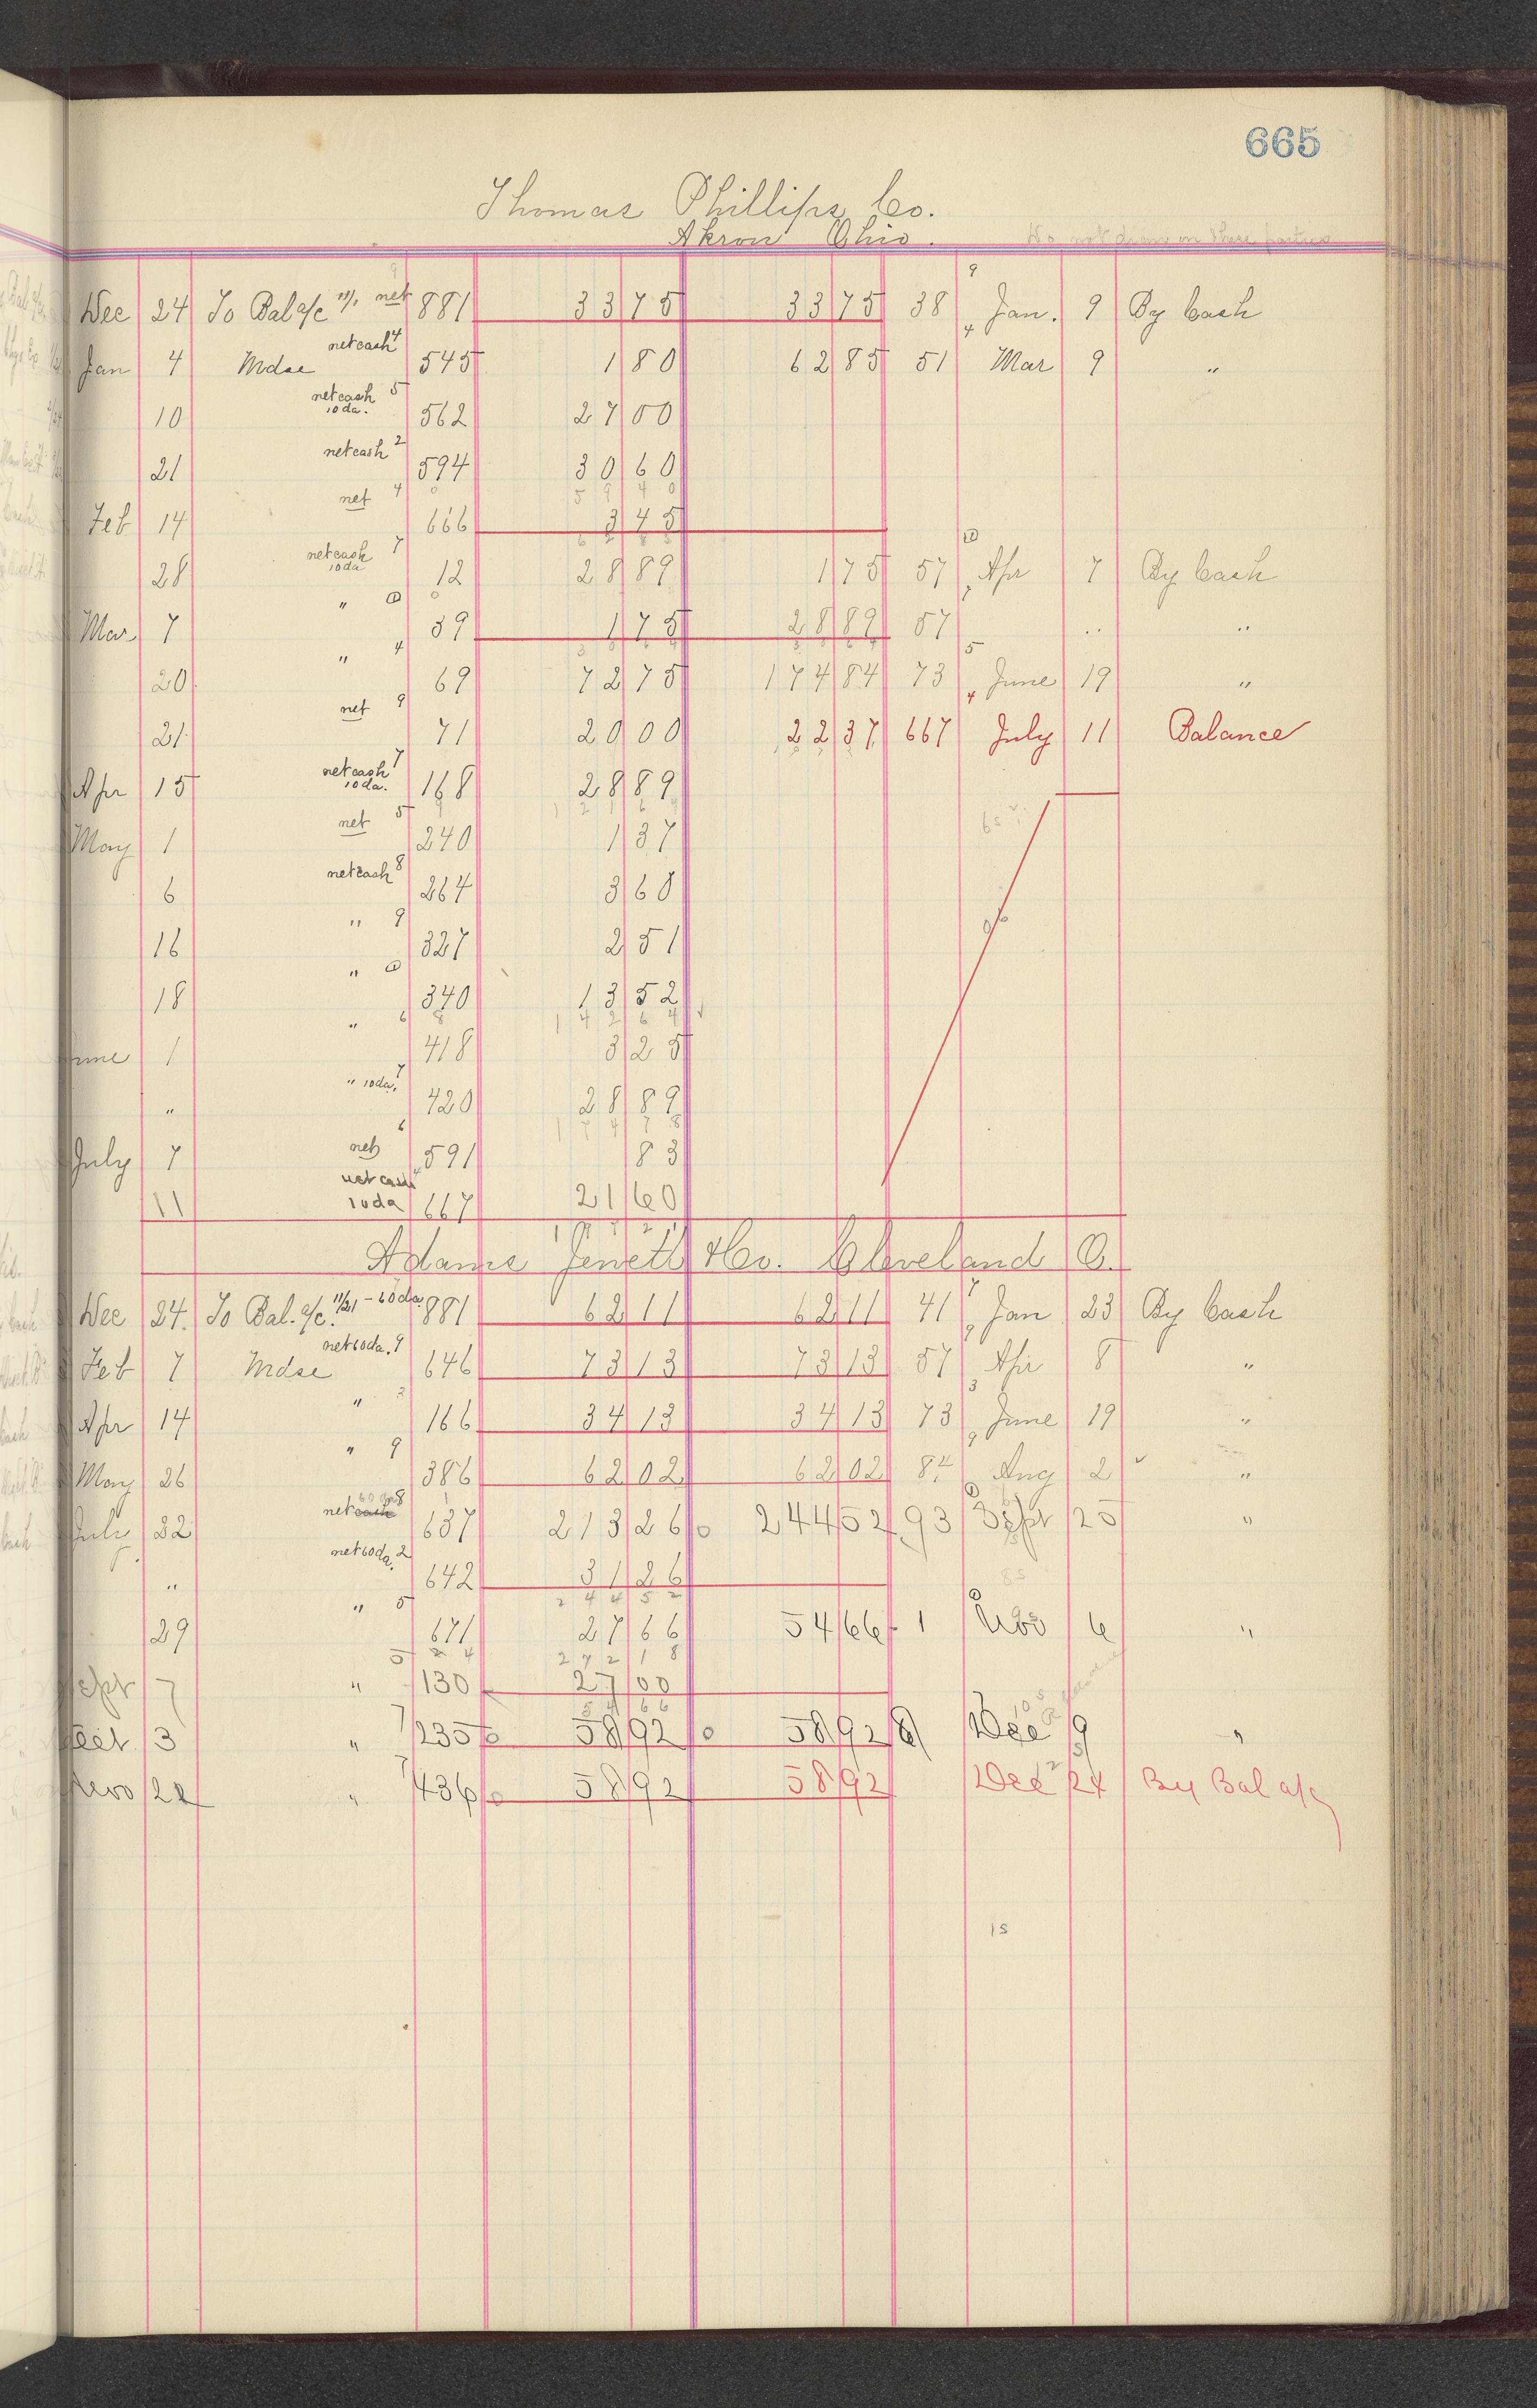 665
Thomas Phillips Co.
Akron Ohio.
Do not draw on these parties
Dec 24 To Bal a/c 11/1 net 881 33 75 33 75 38 Jan. 9 By Cash
Jan 4 Mdse net cash 4 545 1 80 62 85 51 Mar 9 "
10 net cash 10 da. 5 562 27 00
21 net cash 2 594 30 60
59 40
Feb 14 net 4 666 3 45
28 net cash 10 da 7 12 28 89 1 75 57 Apr 7 By Cash
Mar 7 " 39 1 75 28 89 57 " "
20 " 4 69 72 75 174 84 73 June 19 "
21 net 9 71 20 00 22 37 667 July 11 Balance
Apr 15 net cash 10 da. 7 168 28 89
121 64
May 1 net 5 240 1 37
6 net cash 8 264 3 60
16 " 9 327 2 51
18 " 340 13 52
142 64
June 1 " 6 418 3 25
" " 10 da. 7 420 28 89
174 78
July 7 net 6 591 83
11 net cash 10 da 667 21 60
197 21
Adams Jewett & Co. Cleveland O.
Dec 24. To Bal. a/c. 11/21 - 60 da. 881 62 11 62 11 41 Jan 23 By Cash
Feb 7 Mdse net 60 da. 9 646 73 13 73 13 57 Apr 8 "
Apr 14 " 3 166 34 13 34 13 73 June 19 "
May 26 " 9 386 62 02 62 02 84 Aug 2 "
July 22 net cash 60 da 8 637 213 26 244 52 93 Sept 25 "
" net 60 da. 2 642 31 26
244 52
29 " 5 671 27 66 54 66 1 Nov 6 "
272 18
Sept 7 " 5 130 27 00
54 66
Oct 3 " 7 235 58 92 58 92 8 Dec 9 "
Nov 22 " 7 436 58 92 58 92 Dec 24 By Bal a/c
15